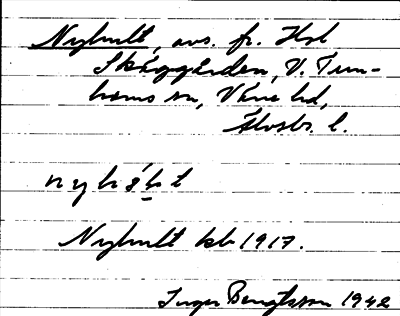 Nyhult, avs. fr. Hbl
Skåggården, V. Tun-
hems sn, Väne hd,
Älvsb. l.
Nyhult kb 1917.
Inger Bengtsson 1942